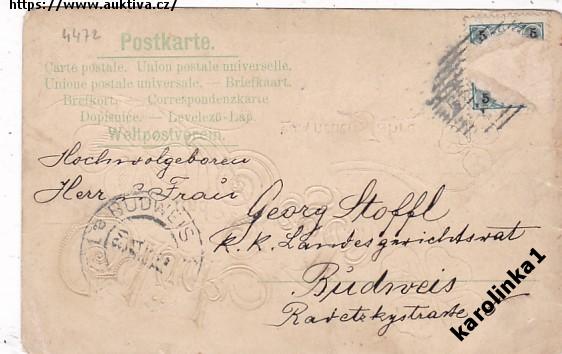 https://www.auktiva.cz/
4472
Postkarte.
Carte postale. Union postale universelle.
Unione postale universale. — Briefkaart.
Brefkort. — Correspondenzkarte
Dopisnice. — Levelező-Lap.
Weltpostverein.
5 5
5
Hochwolgeboren
Herr & Frau
Georg Stoffl
k. k. Landesgerichtsrat
Budweis
Radetzkystrasse
BUDWEIS
karolinka1